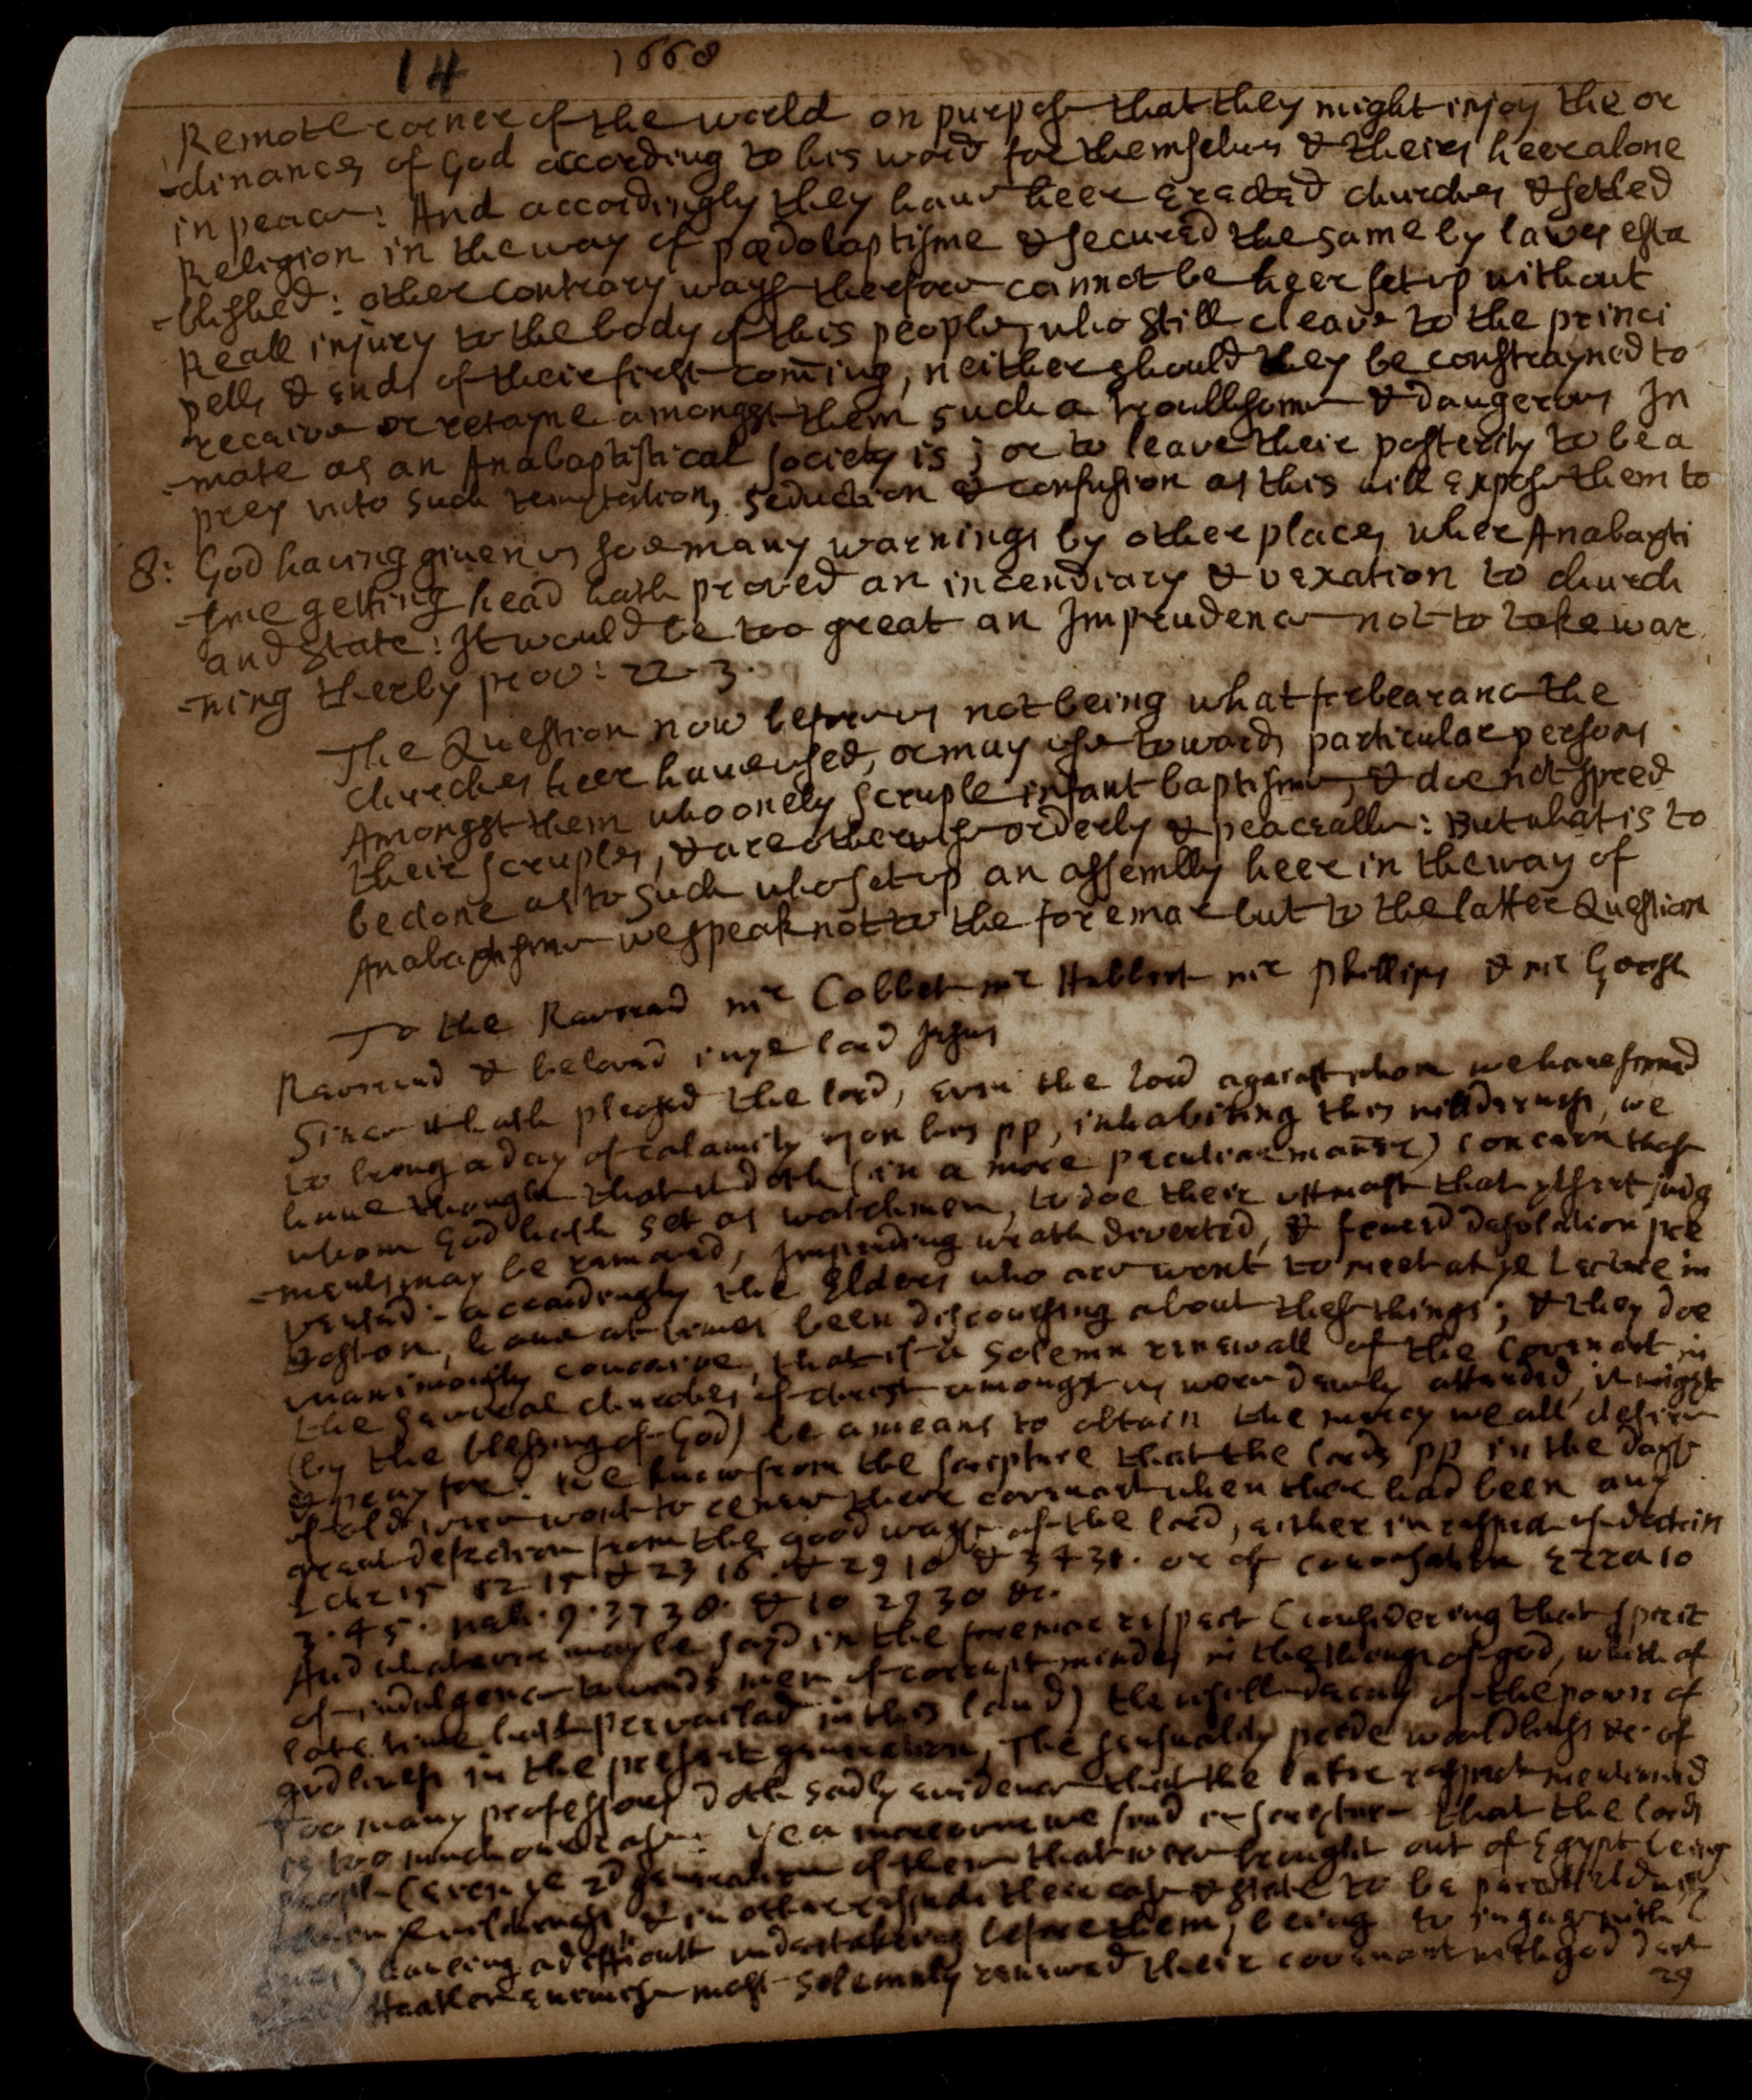 14 1668
Remote corner of the world on purpose that they might injoy the or
-dinances of God according to his word for themselves & theirs heer alone
in peace: And accordingly they haue heer Erected churches & setled
Religion in the way of pædobaptisme & secured the same by lawes esta
-blished: other contrary ways therfore cannot be heer set up without
Reall injury to the body of this people, who still cleave to the princi
pells & Ends of their first coming, neither should they be constrayned to
receive or retayne amongst them such a troublsome & dangerous In
-mate as an Anabaptistical society is; or to leave their posterity to be a
prey unto such temptation, seduction & confusion as this will Expose them to
8: God having given us soe many warnings by other places wher Anabapti
-sme getting head hath proved an incendiary & vexation to church
and State: It would be too great an Imprudence not to take war
-ning therby prov: 22-3.
The Question now before us not being what forbearance the
churches heer haue used, or may use towards particular persons
Amongst them who onely scruple infant baptisme, & doe not spreed
their scruples, & are otherwise orderly & peaceable: But what is to
be done as to such who set up an assembly heer in the way of
Anabaptisme we speak not to the foremar but to the latter Question
To the Reverend mr Cobbet mr Hubbert mr Phillips & mr
Reverend & beloved in ye lord Jesus
Since it hath pleased the lord, Even the lord against whom we haue sinned
to bring a day of calamity upon his pp, inhabiting this willderness, we
haue thought that it doth (in a more peculiar maner) concern those
whom God hath set as watchmen, to doe their utmost that present judg
-ments may be removed, Impending wrath diverted, & feared desolation pre
vented: accordingly the Elders who are wont to meet at ye Lecture in
Boston, haue at times been discoursing about these things; & they doe
unanimously conceive, that if a Solemn renewall of the Covenant in
the severall churches of christ amongst us were duely attended, it might
(by the blessing of God) be a means to obtain the mercy we all desire
& pray for: we know from the scripture that the lords pp in the days
of old were wont to renew there covenant when ther had been any
great defection from the good ways of the lord, either in respect of doctrin
2 chr 15 12 15 & 23 16 & 29 10 & 34 31. or of conversation Ezra 10
3. 4 5. neh. 9. 37 38. & 10 29 30 &c.
And whatever may be sayd in the foremar respect (considering that spirit
of indulgence towards men of corrupt mindes in the things of god, which of
late time hath prevailed in this land) the decay of the power of
godliness in the present generation, The sensuality pride worldliness &c. of
Too many professors doth sadly evidence that the latter respect mentioned
is too much our case. yea moreover we find in scripture that the lords
people (even ye 2d generation of them that were brought out of Egypt being
then in wilderness, & in other respects their case & state to be
having a difficult undertaking before them, being to ingage with
Heathen enemies most Solemnly renewed their covenant with god deut
29